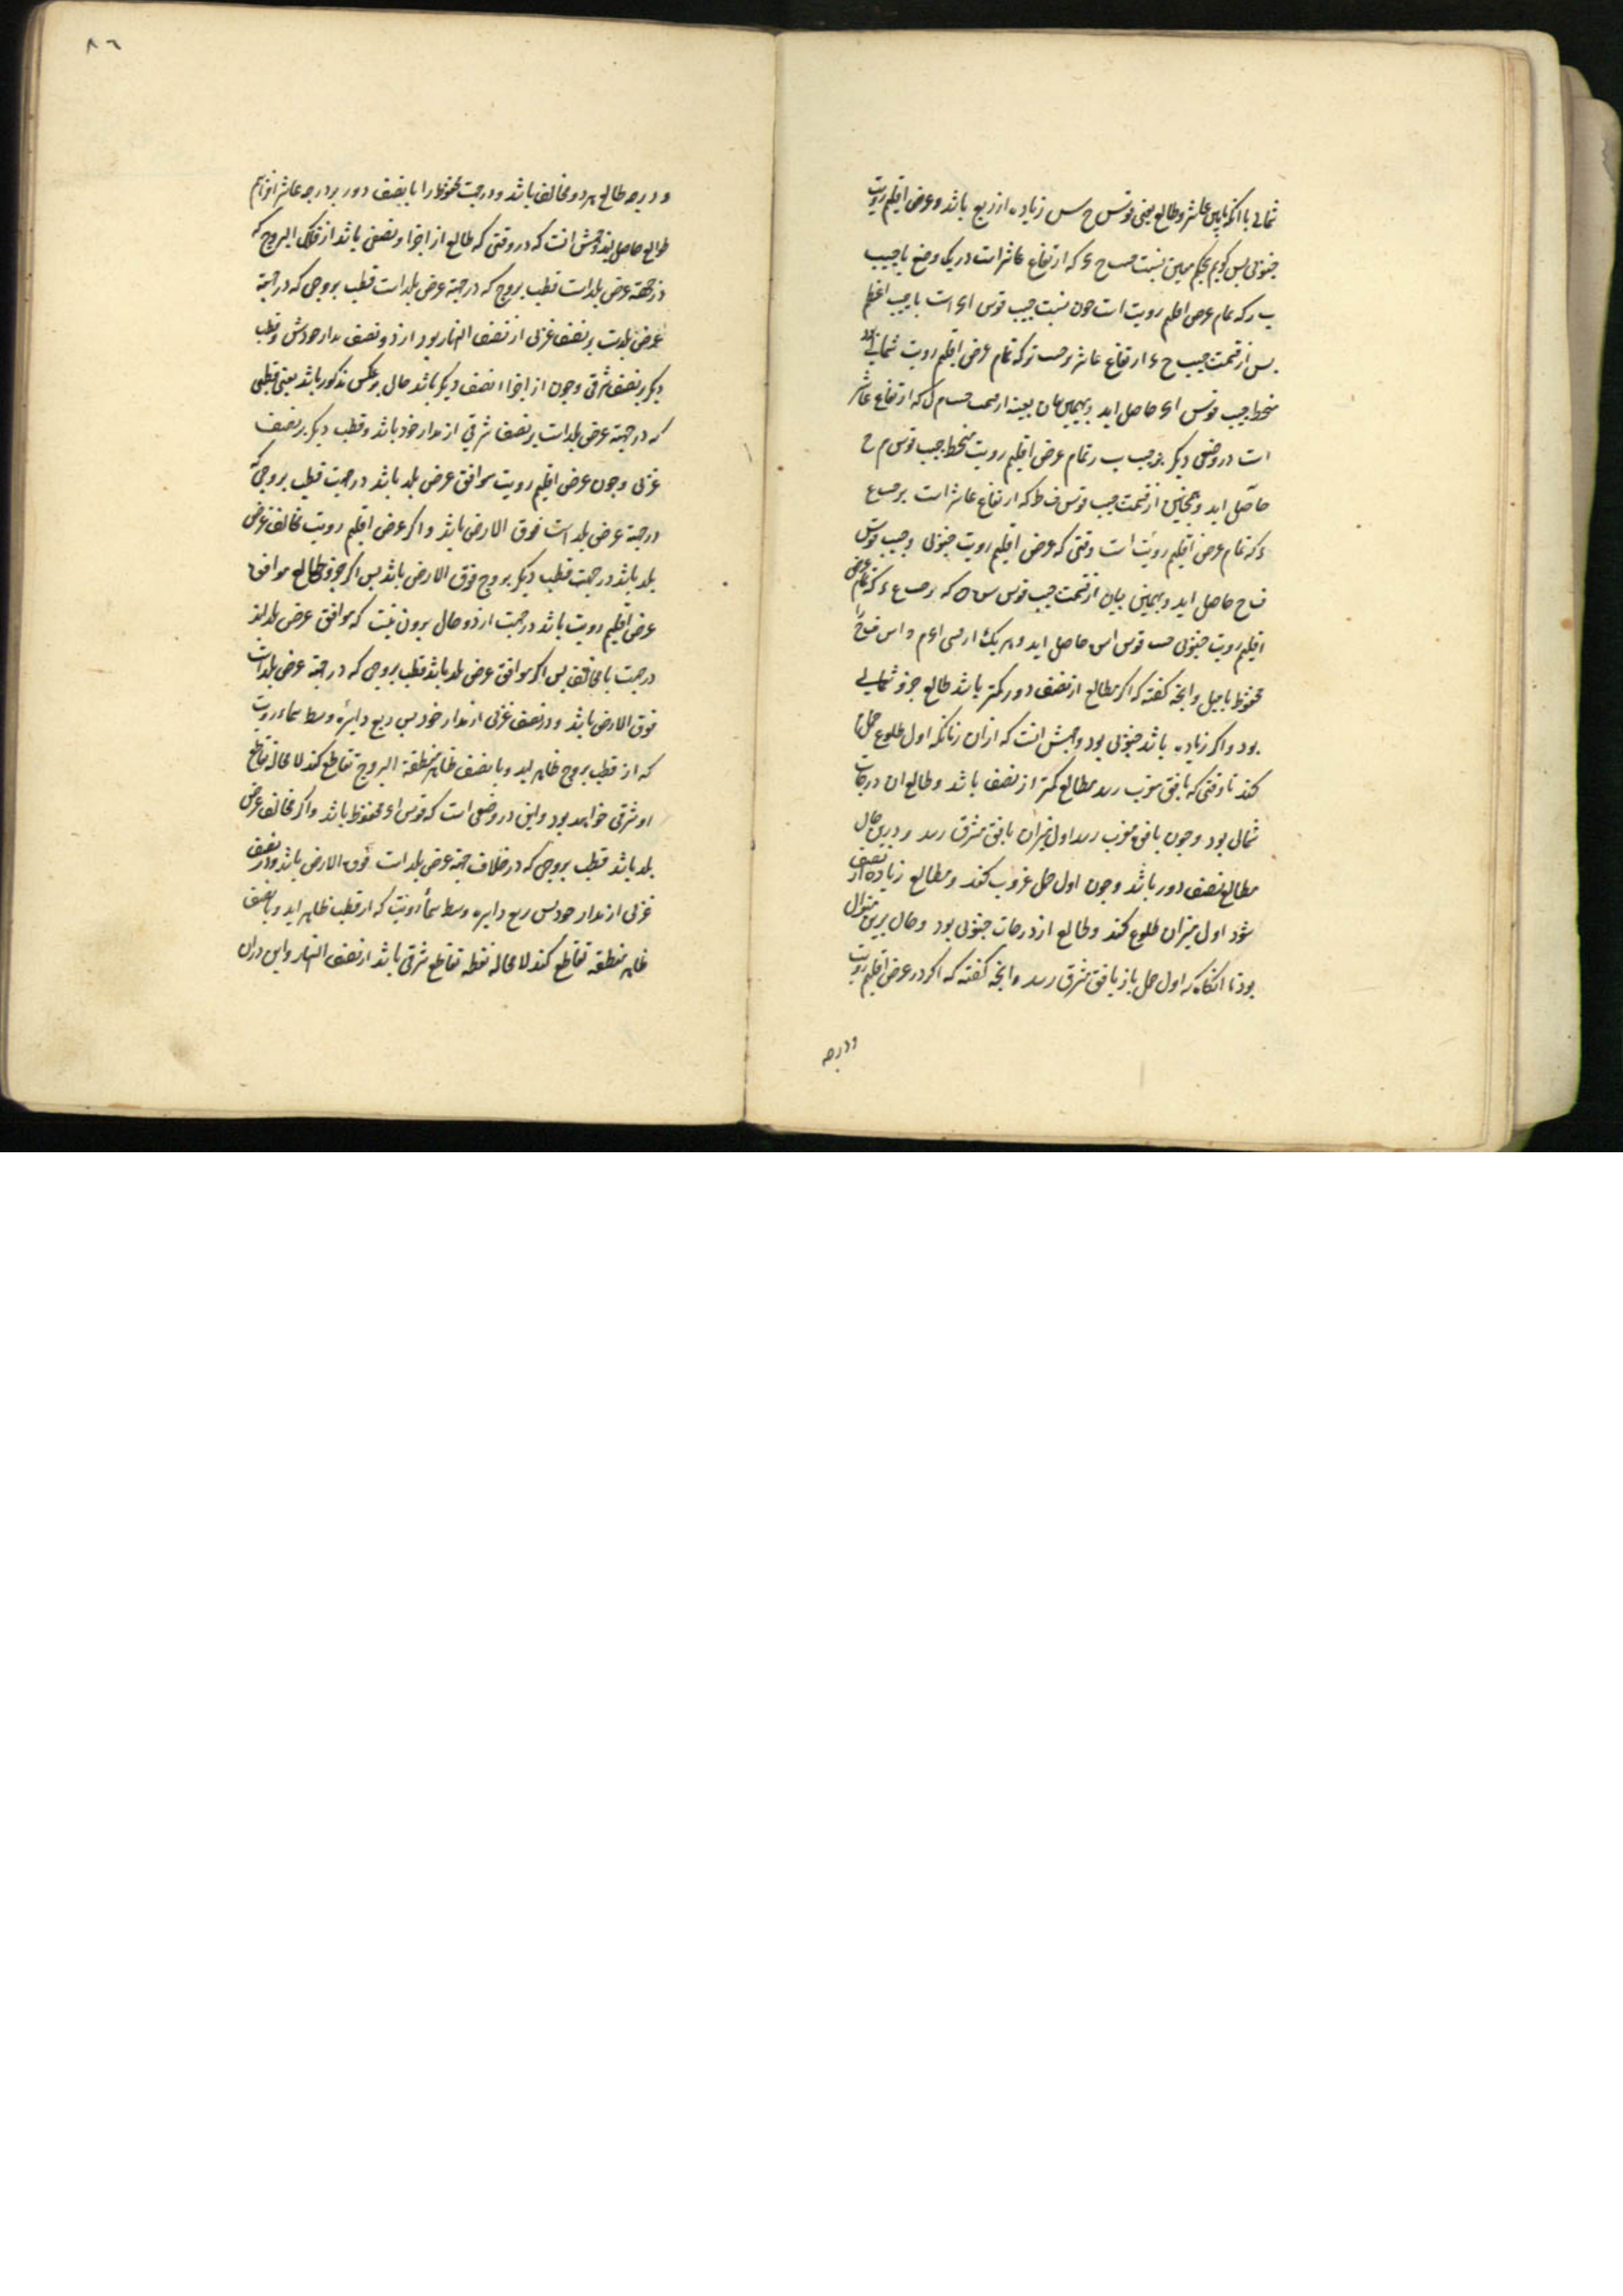 شمالی با آنکه مابین عاشر و طالع یعنی قوس ح س زیاده از ربع باشد و عرض اقلیم رویت
جنوبی پس کوییم بحکم مغنی نسبت جیب ح ء که ارتفاع عاشر است در یک وضع با جیب
ب ر که تمام عرض اقلیم رویت است چون نسبت جیب قوس ا ء است با جیب اعظم
پس از قسمت جیب ح ء ارتفاع عاشر بر جیب ب ر که تمام عرض اقلیم رویت شمالی بود
منحط جیب قوس ا ء حاصل اید و بهمین بیان بعینه از قسمت جیب م ل که ارتفاع عاشر
است در وضعی دیکر بر جیب ب ر تمام عرض اقلیم رویت منحط جیب قوس م ح
حاصل اید و همچنین از قسمت جیب قوس ف ط که ارتفاع عاشر است بر جیب ع
ء که تمام عرض اقلیم رویت است وقتی که عرض اقلیم رویت جنوبی و جیب قوس
ف ح حاصل اید و بهمین بیان از قسمت جیب قوس س ن که بر جیب ع ء که تمام عرض
اقلیم رویت جنوبی جیب قوس اس حاصل اید و هر یک از قسی ا ء م ح اس ف ح را
محفوظ با جیل و انچه کفته که اکر مطالع از نصف دور کمتر باشد طالع جزو شمالی
بود و اکر زیاده باشد جنوبی بود وجهش انست که از ان زمانکه اول حمل طلوع
کند تا وقتی که بافق مغرب رسد مطالع کمتر از نصف باشد و طالع ان درجات
شمالی بود و چون بافق مغرب رسد اول میزان بافق مشرق رسد و درین حال
مطالع نصف دور باشد و چون اول حمل غروب کند و مطالع زیاده از نصف
شود اول میزان طلوع کند و طالع از درجات جنوبی بود و حال برین منوال
بود تا انکاه که اول حمل باز بافق مشرق رسد و انچه کفته که اکر در عرض اقلیم رویت
ودرجه
٨٦
و درجه طالع هر دو مخالف باشد در جهت محفوظ را با نصف دور بر درجه عاشر افزاییم
طوالع حاصل اید وجهش انست که در وقتی که طالع از اجزاء نصفی باشد از فلک البروج که
در جهة عرض بلد است قطب بروج که در جهة عرض بلد است قطب بروجی که در جهة
عرض بلدست بر نصف غربی از نصف النهار بود از دو نصف مدار خودش و قطب
دیکر بر نصف شرقی و چون از اجزاء نصف دیکر باشد حال بر عکس مذکور باشد یعنی قطبی
که در جهة عرض بلد است بر نصف شرقی از مدار خود باشد و قطب دیکر بر نصف
غربی و چون عرض اقلیم رویت موافق عرض بلد باشد در جهت قطب بروجی که
در جهة عرض بلد است فوق الارض باشد و اکر عرض اقلیم رویت مخالف عرض
بلد باشد در جهت قطب دیکر بروج فوق الارض باشد پس اکر جزو طالع موافق
عرض اقلیم رویت باشد در جهت از دو حال برون نیست که موافق عرض بلدند
در جهت یا مخالف پس اکر موافق عرض بلد باشد قطب بروجی که در جهة عرض بلد است
فوق الارض باشد و در نصف غربی از مدار خود پس ربع دایره وسط سماء رویت
که از قطب بروج ظاهر اید و با نصف ظاهر منطقة البروج تقاطع کند لا محاله تقاطع
او شرقی خواهد بود و این در وضعی است که قوس ا ء محفوظ باشد و اکر مخالف عرض
بلد باشد قطب بروجی که در خلاف جهة عرض بلد است فوق الارض باشد و در نصف
غربی از مدار خود پس ربع دایره وسط سماء رویت که از قطب ظاهر اید و با نصف
ظاهر منطقه تقاطع کند لا محاله نقطه تقاطع شرقی باشد از نصف النهار و این در ان